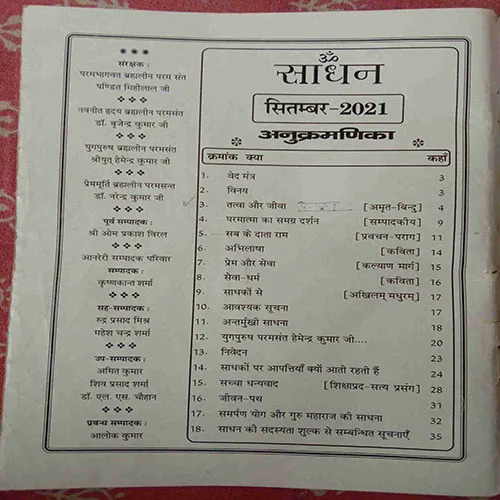 संरक्षक :
परमभागवत ब्रह्मलीन परम संत
पण्डित मिहीलाल जी
नवनीत हृदय ब्रह्मलीन परमसंत
डॉ. बृजेन्द्र कुमार जी
युगपुरुष ब्रह्मलीन परमसंत
श्रीयुत् हेमेन्द्र कुमार जी
प्रेममूर्ति ब्रह्मलीन परमसन्त
डॉ. नरेन्द्र कुमार जी
पूर्व सम्पादक :
श्री ओम प्रकाश विरल
आनरेरी सम्पादक परिवार
सम्पादक :
कृष्णकान्त शर्मा
सह-सम्पादक :
रुद्र प्रसाद मिश्र
महेश चन्द्र शर्मा
उप-सम्पादक :
अमित कुमार
शिव प्रसाद शर्मा
डॉ. एल. एस. चौहान
प्रबन्ध सम्पादक :
आलोक कुमार
ॐ
साधन
सितम्बर-2021
अनुक्रमणिका
क्रमांक क्या कहाँ
1. वेद मंत्र 3
2. विनय 3
3. तत्वा और जीवा [अमृत-बिन्दु] 4
4. परमात्मा का समग्र दर्शन [सम्पादकीय] 9
5. सब के दाता राम [प्रवचन-पराग] 11
6. अभिलाषा [कविता] 14
7. प्रेम और सेवा [कल्याण मार्ग] 15
8. सेवा-धर्म [कविता] 16
9. साधकों से [अखिलम् मधुरम्] 17
10. आवश्यक सूचना 17
11. अन्तर्मुखी साधना 18
12. युगपुरुष परमसंत हेमेन्द्र कुमार जी.... 20
13. निवेदन 23
14. साधकों पर आपत्तियाँ क्यों आती रहती हैं 24
15. सच्चा धन्यवाद [शिक्षाप्रद-सत्य प्रसंग] 28
16. जीवन-पथ 31
17. समर्पण योग और गुरु महाराज की साधना 32
18. साधन की सदस्यता शुल्क से सम्बन्धित सूचनाएँ 35